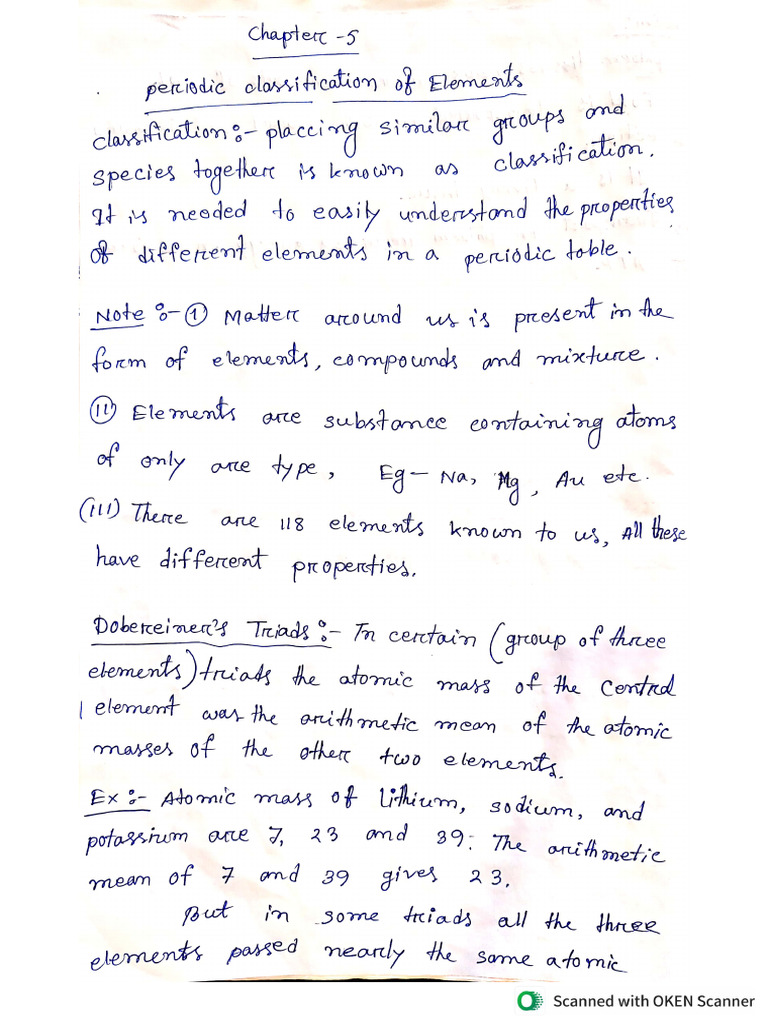 Chapter -5
periodic classification of Elements
classification:- placcing similar groups and
species together is known as classification.
It is needed to easily understand the properties
of different elements in a periodic table.
Note :- (1) Matter around us is present in the
form of elements, compounds and mixture.
(II) Elements are substance containing atoms
of only are type, Eg - Na, Mg, Au etc.
(III) There are 118 elements known to us, All these
have different properties.
Dobereiner's Triads :- In certain (group of three
elements) triads the atomic mass of the Central
element was the arithmetic mean of the atomic
masses of the other two elements.
Ex :- Atomic mass of lithium, sodium, and
potassium are 7, 23 and 39. The arithmetic
mean of 7 and 39 gives 23.
But in some triads all the three
elements passed nearly the same atomic
Scanned with OKEN Scanner